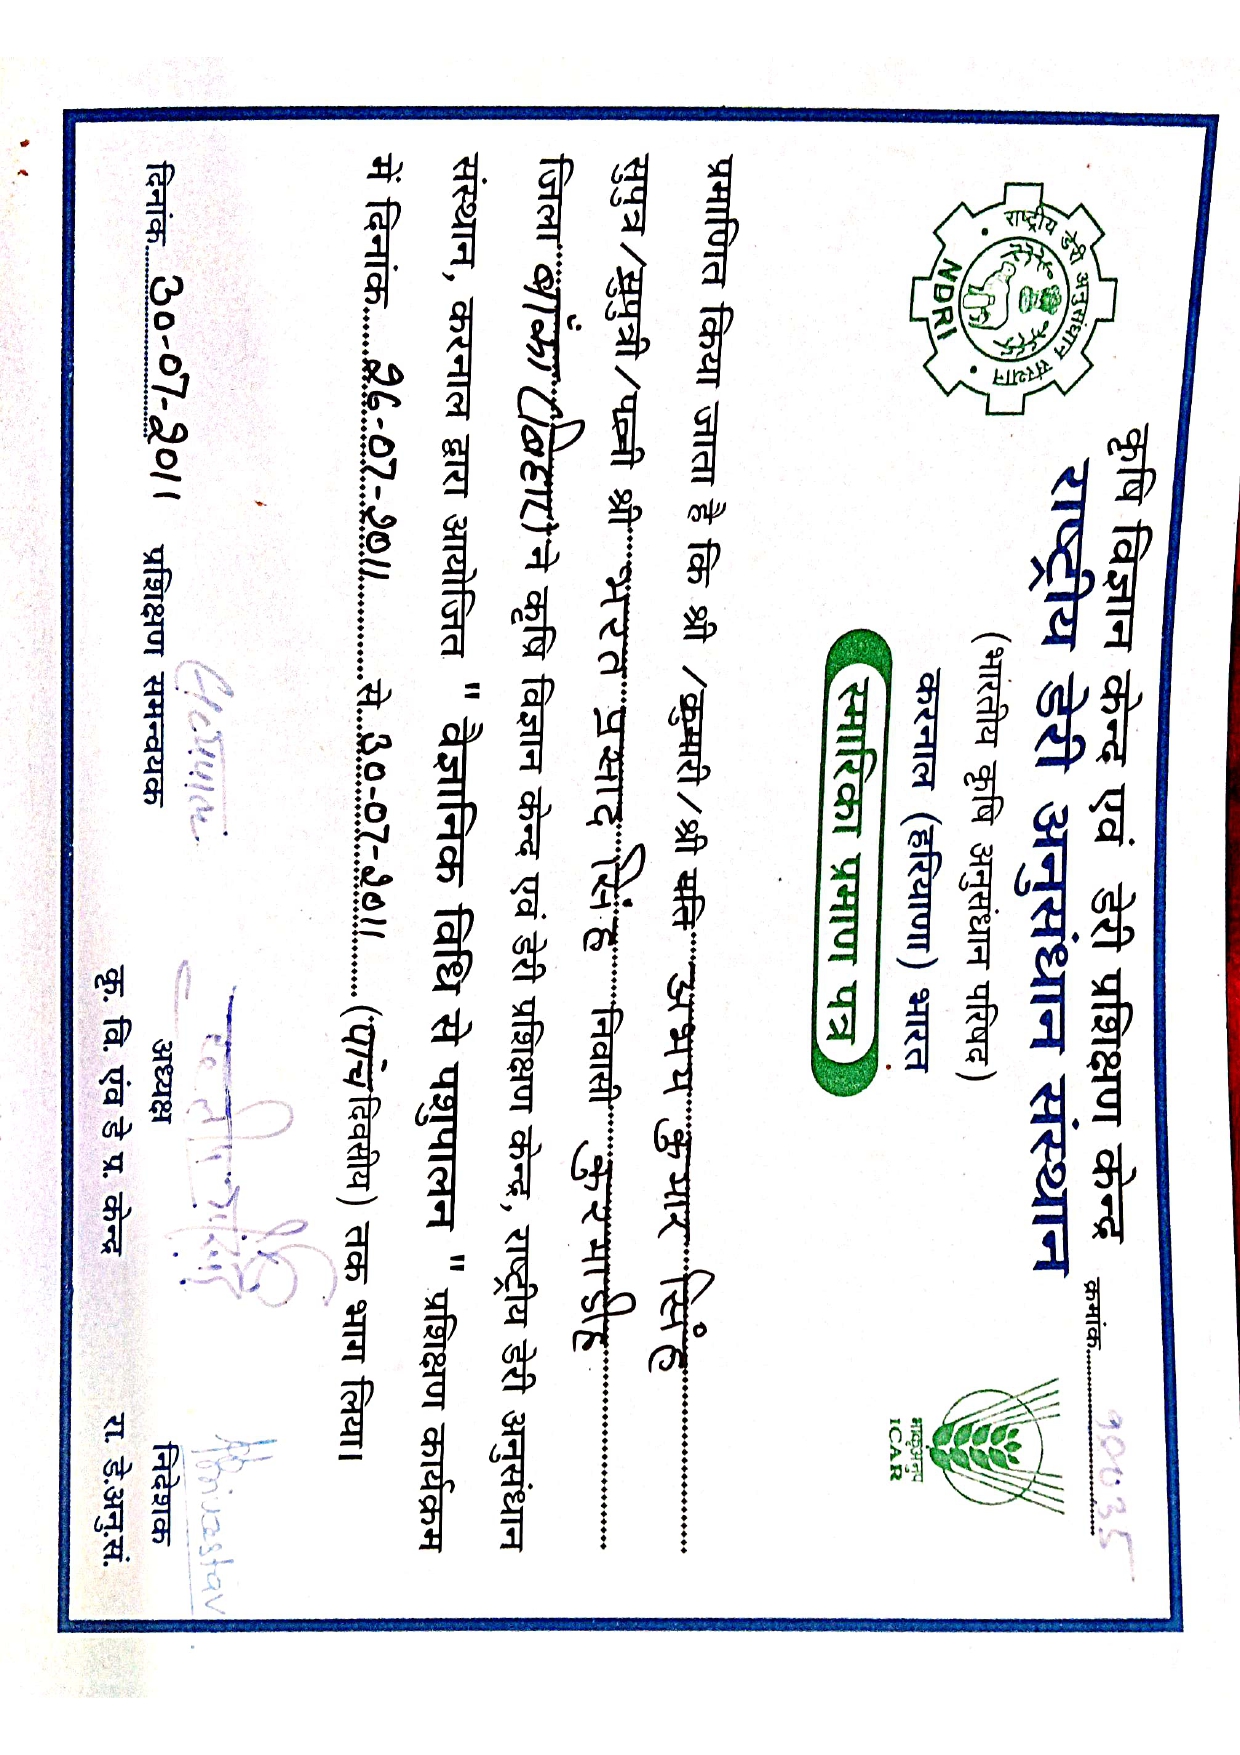 कृषि विज्ञान केन्द्र एवं डेरी प्रशिक्षण केन्द्र
क्रमांक
राष्ट्रीय डेरी अनुसंधान संस्थान
(भारतीय कृषि अनुसंधान परिषद)
करनाल (हरियाणा) भारत
राष्ट्रीय डेरी अनुसंधान संस्थान
NDRI
भाकृअनुप
ICAR
स्मारिका प्रमाण पत्र
प्रमाणित किया जाता है कि श्री /कुमारी/श्री मति अभय कुमार सिंह
सुपुत्र/सुपुत्री/पत्नी श्री भरत प्रसाद सिंह निवासी कुरमाडीह
जिला बांका (बिहार) ने कृषि विज्ञान केन्द्र एवं डेरी प्रशिक्षण केन्द्र, राष्ट्रीय डेरी अनुसंधान
संस्थान, करनाल द्वारा आयोजित " वैज्ञानिक विधि से पशुपालन " प्रशिक्षण कार्यक्रम
में दिनांक 26-07-2011 से 30-07-2011 (पांच दिवसीय) तक भाग लिया।
दिनांक 30-07-2011
प्रशिक्षण समन्वयक
अध्यक्ष
कृ. वि. एंव डे प्र. केन्द्र
निदेशक
रा. डे.अनु.सं.